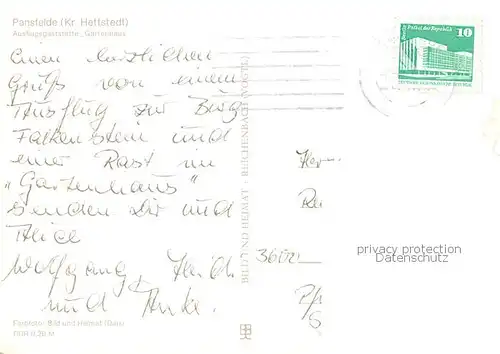 Pansfelde (Kr. Hettstedt)
Ausflugsgaststätte „Gartenhaus"
Einen herzlichen
Gruß von einem
Ausflug zur Burg
Falkenstein und
einer Rast im
„Gartenhaus"
senden Dir und
Alice
Wolfgang, Heidi
und Anke.
Bild und Heimat
DDR 0,20 M
BILD UND HEIMAT · REICHENBACH (VOGTL)
Berlin Palast der Republik
10
3600
privacy protection
Datenschutz